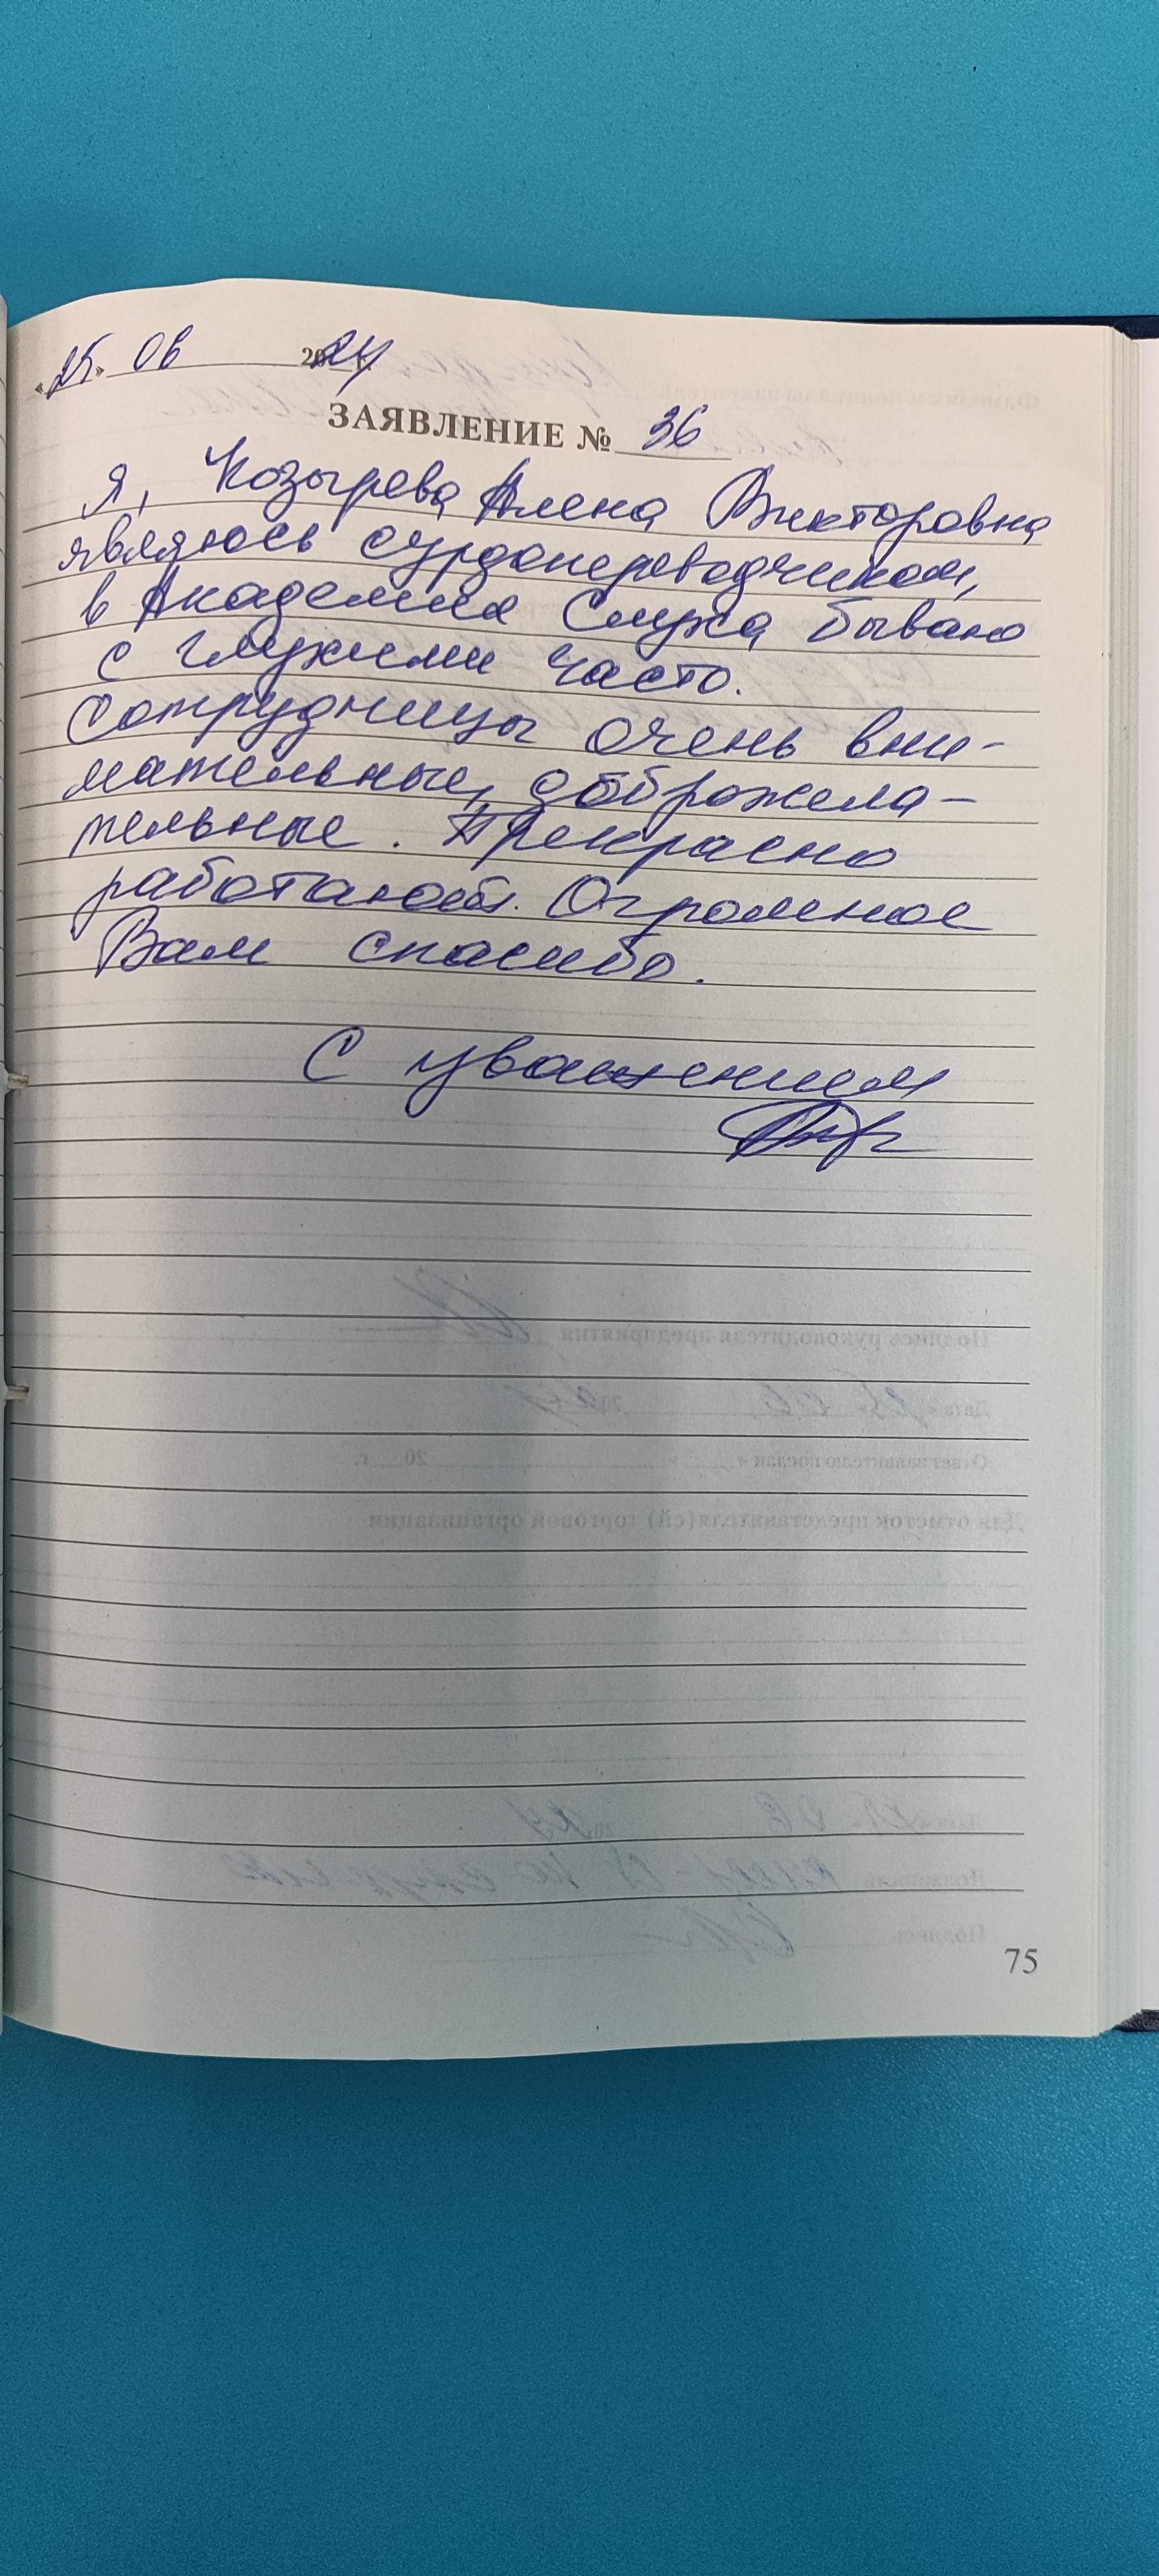 «25» 06 2024 г.
ЗАЯВЛЕНИЕ № 36
Я, Козырева Алена Викторовна
являюсь сурдопереводчиком,
в Академии Слуха бываю
с глухими часто.
Сотрудницы очень вни-
мательные, доброжела-
тельные. Прекрасно
работают. Огромное
Вам спасибо.
С уважением
75